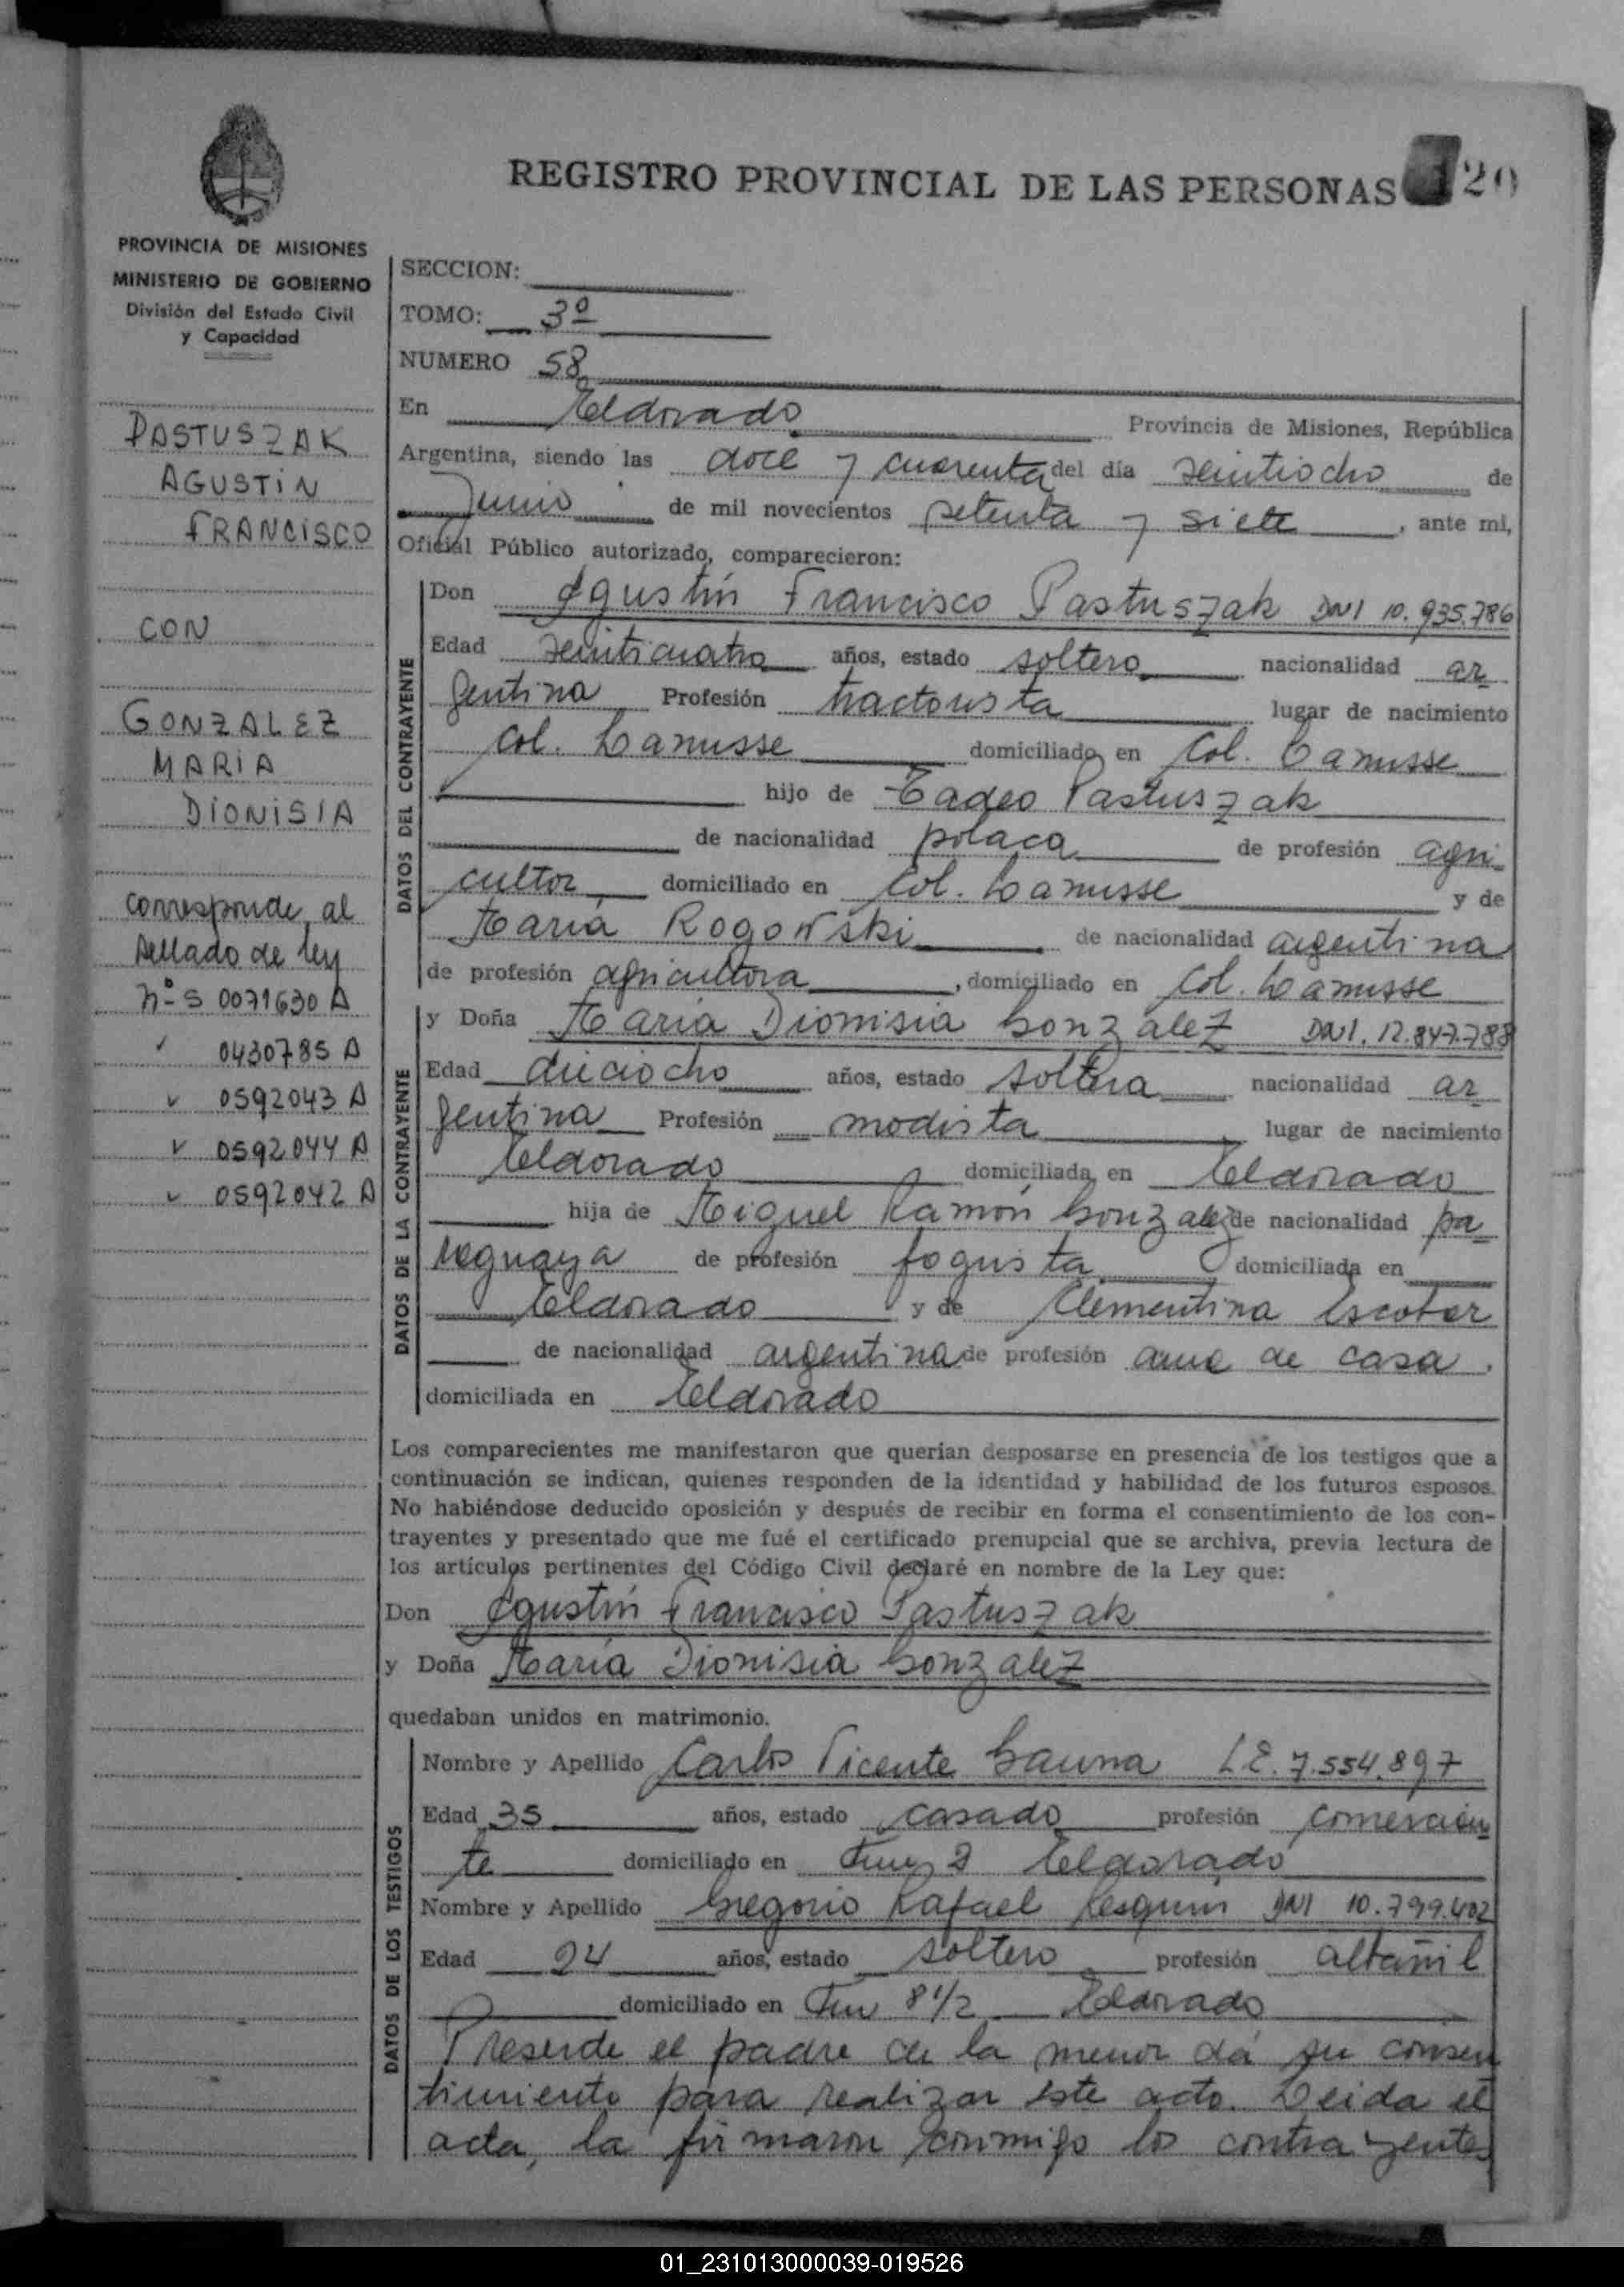 REGISTRO PROVINCIAL DE LAS PERSONAS 120
PROVINCIA DE MISIONES
MINISTERIO DE GOBIERNO
División del Estado Civil
y Capacidad
PASTUSZAK
AGUSTIN
FRANCISCO
CON
GONZALEZ
MARIA
DIONISIA
corresponde al
sellado de ley
nº S 0071630 A
0430785 A
0592043 A
0592044 A
0592042 A
SECCION:
TOMO: 3º
NUMERO 58
En Eldorado Provincia de Misiones, República
Argentina, siendo las doce y cuarenta del día veintiocho de
Junio de mil novecientos setenta y siete, ante mi,
Oficial Público autorizado, comparecieron:
DATOS DEL CONTRAYENTE
Don Agustín Francisco Pastuszak DNI 10.935.786
Edad veinticuatro años, estado soltero nacionalidad ar
gentina Profesión tractorista lugar de nacimiento
Col. Lanusse domiciliado en Col. Lanusse
hijo de Tadeo Pastuszak
de nacionalidad polaca de profesión agri-
cultor domiciliado en Col. Lanusse y de
María Rogowski de nacionalidad argentina
de profesión agricultora, domiciliado en Col. Lanusse
DATOS DE LA CONTRAYENTE
y Doña María Dionisia Gonzalez DNI. 12.847.788
Edad dieciocho años, estado soltera nacionalidad ar
gentina Profesión modista lugar de nacimiento
Eldorado domiciliada en Eldorado
hija de Miguel Ramón Gonzalez de nacionalidad pa
raguaya de profesión foguista domiciliada en
Eldorado y de Clementina Escobar
de nacionalidad argentina de profesión ama de casa,
domiciliada en Eldorado
Los comparecientes me manifestaron que querían desposarse en presencia de los testigos que a
continuación se indican, quienes responden de la identidad y habilidad de los futuros esposos.
No habiéndose deducido oposición y después de recibir en forma el consentimiento de los con-
trayentes y presentado que me fué el certificado prenupcial que se archiva, previa lectura de
los artículos pertinentes del Código Civil declaré en nombre de la Ley que:
Don Agustín Francisco Pastuszak
y Doña María Dionisia Gonzalez
quedaban unidos en matrimonio.
DATOS DE LOS TESTIGOS
Nombre y Apellido Carlos Vicente Gauna L.E. 7.554.897
Edad 35 años, estado casado profesión comercian
te domiciliado en Eldorado
Nombre y Apellido Gregorio Rafael DNI 10.799.402
Edad 24 años, estado soltero profesión albañil
domiciliado en Km 8 1/2 Eldorado
Presente el padre de la menor dá su consen
timiento para realizar este acto. Leida el
acta, la firmaron conmigo los contrayentes
01_231013000039-019526